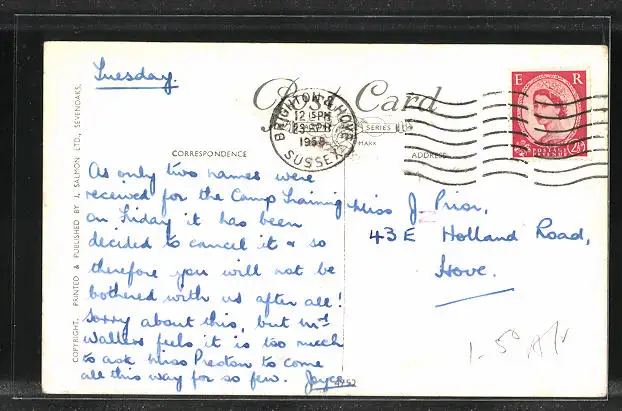 Tuesday.
Post Card
BRIGHTON & HOVE
12 15PM
23 APR
SUSSEX
E R
POSTAGE
REVENUE
SERIES
CORRESPONDENCE
ADDRESS
As only two names were
received for the Camp Training
on Friday it has been
decided to cancel it & so
therefore you will not be
bothered with us after all!
Sorry about this, but Mrs
Walters feels it is too much
to ask Miss Preston to come
all this way for so few. Joyce
Miss J. Prior,
43E Holland Road,
Hove.
COPYRIGHT. PRINTED & PUBLISHED BY J. SALMON LTD., SEVENOAKS.